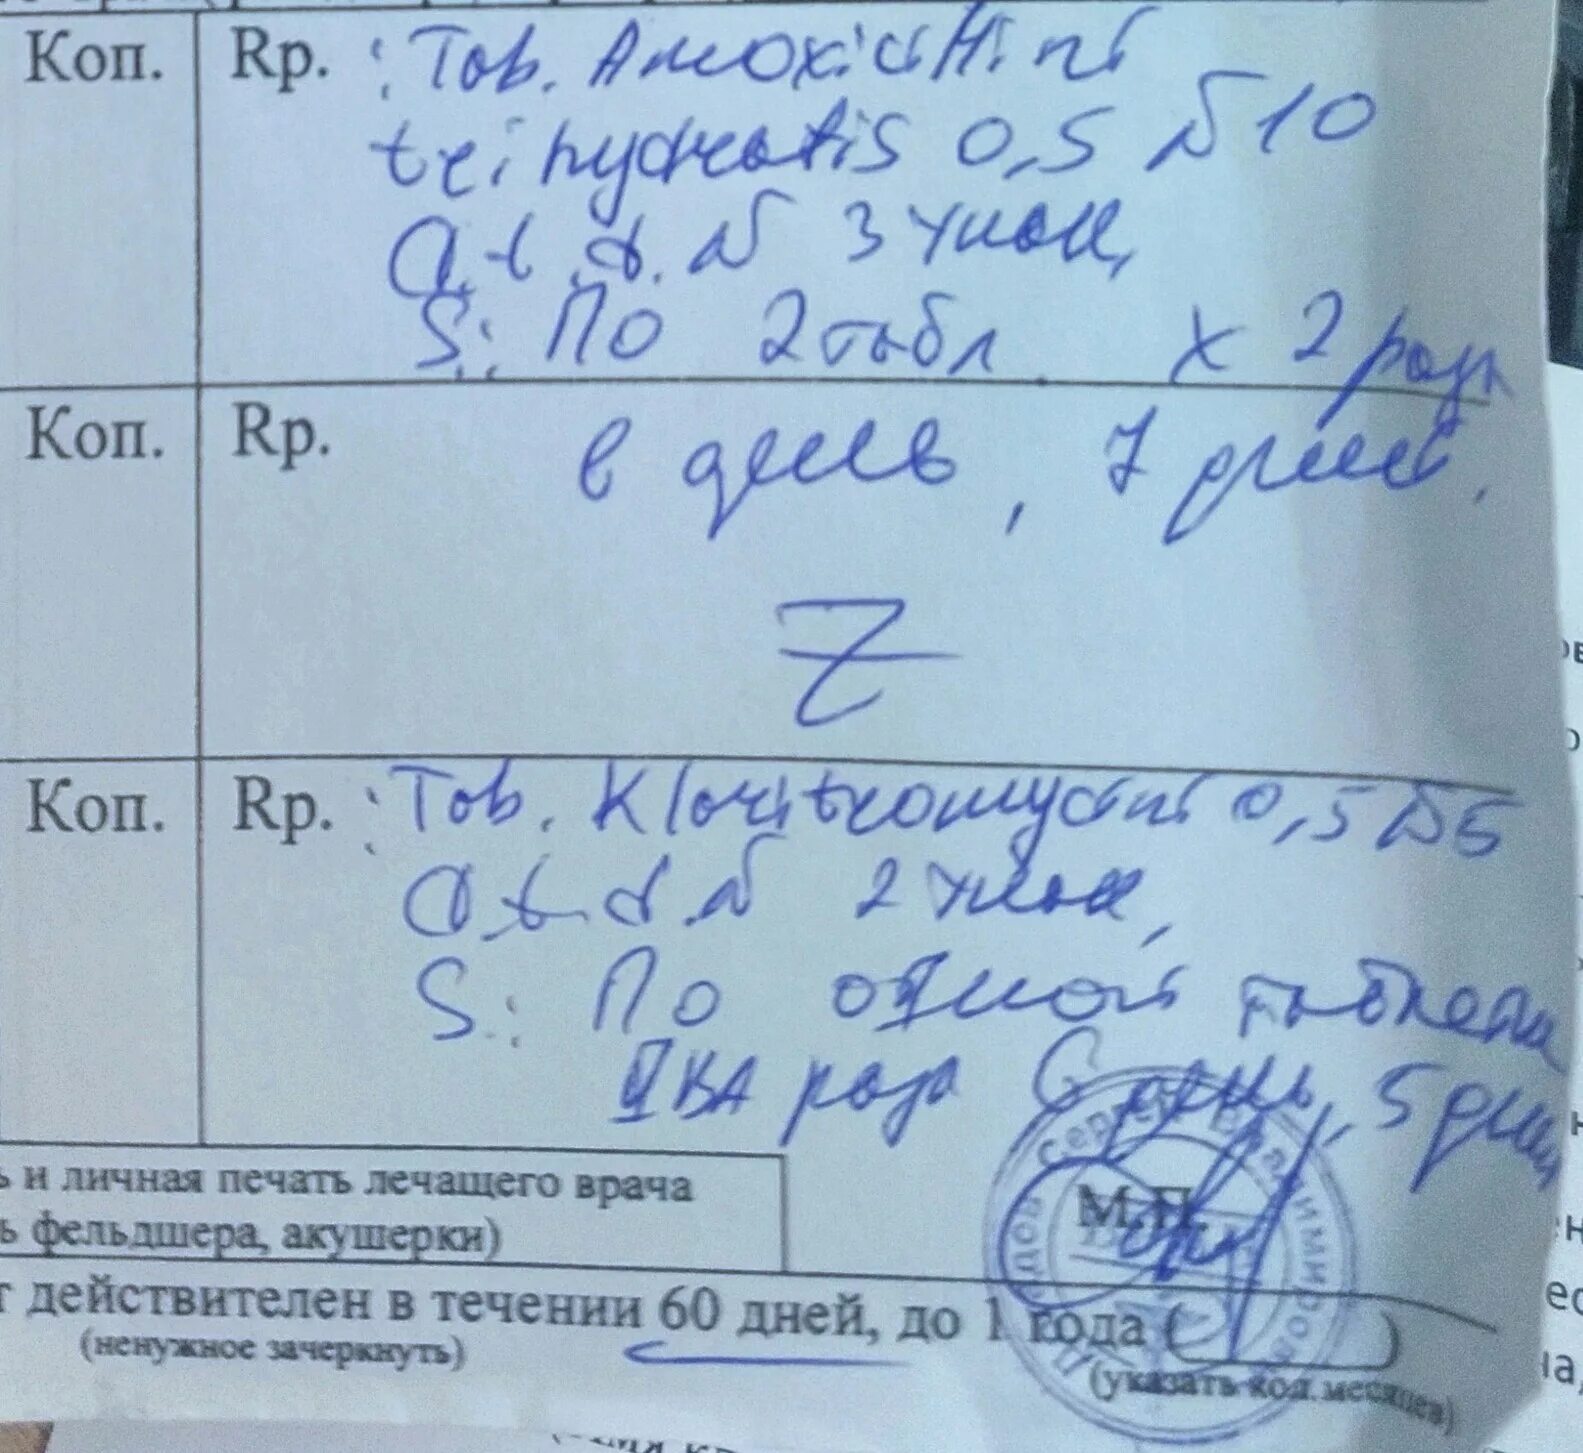 Коп. Rp. : Tab. Amoxicillini
trihydratis 0,5 №10
D.t.d. № 3 упак,
S.: По 2 табл. х 2 раза
Коп. Rp. в день, 7 дней.
Z
Коп. Rp. : Tab. Klaritromycini 0,5 №5
D.t.d. № 2 упак,
S.: По одной таблетки
два раза в день, 5 дней
и личная печать лечащего врача
фельдшера, акушерки)
М.П.
Сергей Владимирович
действителен в течении 60 дней, до 1 года ( )
(ненужное зачеркнуть)
(указать кол.месяцев)